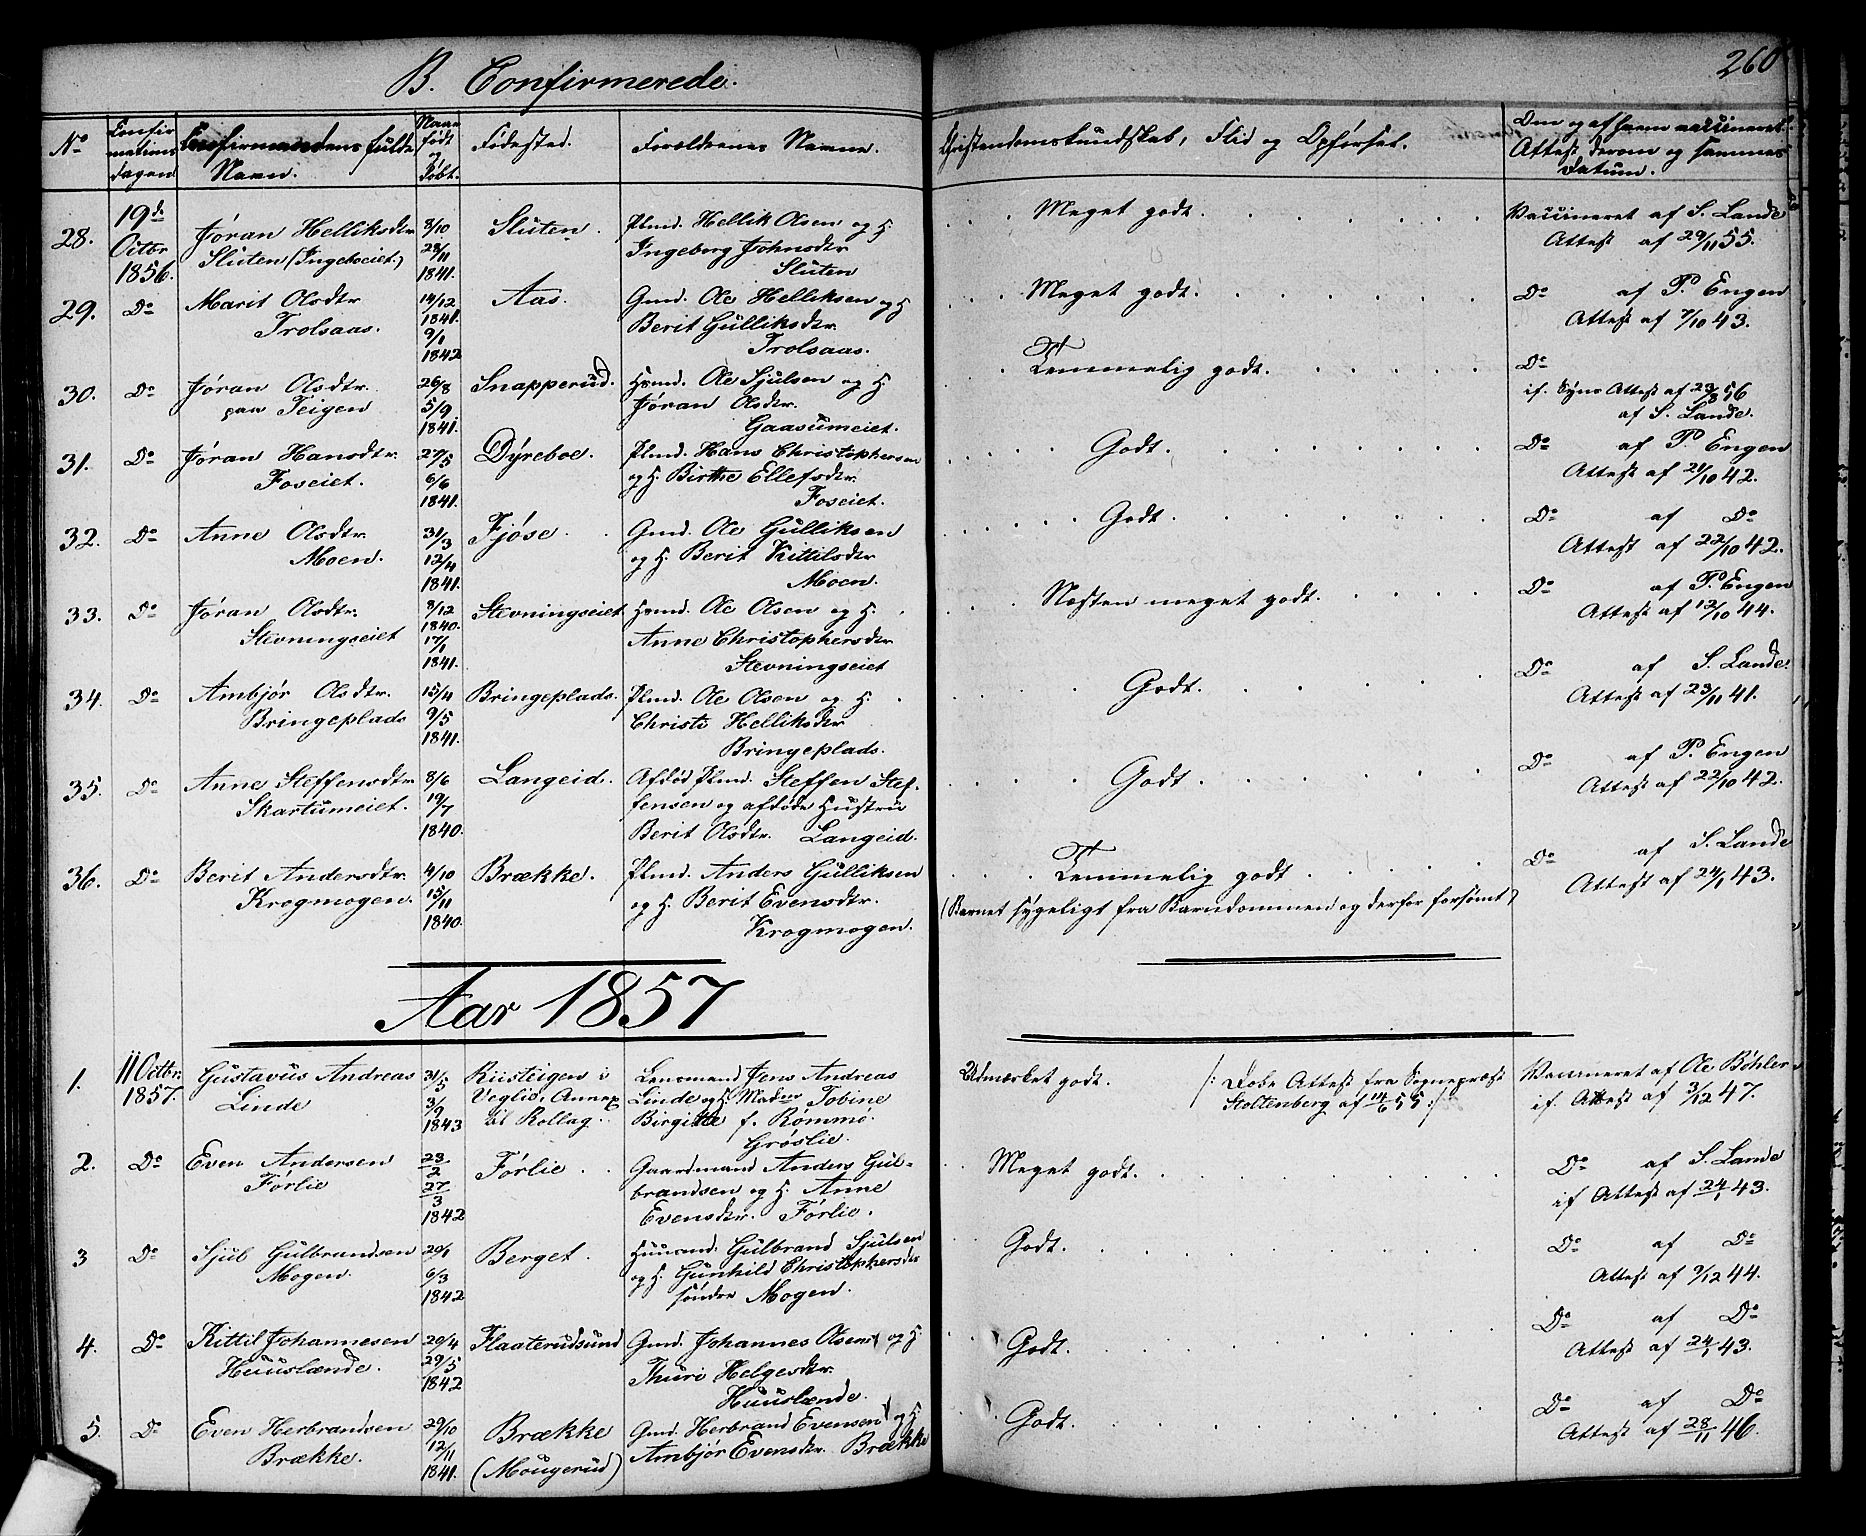 B. Confirmerede.
260
No
Confirmations dagen
Confirmandens fulde Navn.
Naar født & døbt.
Fødested.
Forældrenes Navne.
Christendomskundskab, Flid og Opførsel.
Om og af hvem vaccineret. Attest derom og sammes Datum.
28.
19de Octbr 1856.
Jøran Helliksdtr
Sluten (Ingeboeiet)
3/10
28/11
1841.
Sluten.
Plmd. Hellik Olsen og H.
Ingeborg Johnsdtr
Sluten
Meget godt.
Vaccineret af S. Lande
Attest af 29/11 55.
29.
Do
Marit Olsdtr
Trolsaas.
14/12
1841.
9/1
1842
Aas.
Gmd. Ole Helliksen og H
Berit Gulliksdtr.
Trolsaas.
Meget godt.
Do af P. Engen
Attest af 7/10 43.
30.
Do
Jøran Olsdtr.
paa Teigen
26/8
5/9
1841.
Snapperud.
Hsmd. Ole Sjulsen og H
Jøran Olsdtr.
Gaasumeiet.
Temmelig godt.
Do
if. Syns Attest af 23/8 56
af S. Lande.
31.
Do
Jøran Hansdtr.
Foseiet.
27/5
6/6
1841.
Dyreboe.
Plmd. Hans Christophersen
og H. Birthe Ellefsdtr.
Foseiet.
Godt.
Do af P. Engen
Attest af 21/10 42.
32.
Do
Anne Olsdtr.
Moen.
31/3
12/4
1841.
Fjøse.
Gmd. Ole Gulliksen
og H. Berit Kittilsdtr
Moen.
Godt.
Do af Do
Attest af 22/10 42.
33.
Do
Jøran Olsdtr.
Stevningseiet
8/12
1840.
17/1
1841.
Stevningseiet
Hsmd. Ole Olsen og H.
Anne Christophersdtr
Stevningseiet
Næsten meget godt.
Do af P. Engen
Attest af 12/10 44.
34.
Do
Ambjør Olsdtr.
Bringeplads
15/4
9/5
1841.
Bringeplads.
Plmd. Ole Olsen og H.
Christi Helliksdtr
Bringeplads.
Godt.
Do af S. Lande
Attest af 23/11 41.
35.
Do
Anne Steffensdtr
Skartumeiet.
8/6
19/7
1840.
Langeid.
Afdød Plmd. Steffen Stef-
fensen og afdøde Hustru
Berit Olsdtr. Langeid.
Godt.
Do af P. Engen
Attest af 22/10 42.
36.
Do
Berit Andersdtr.
Krogmogen.
4/10
15/11
1840.
Brække.
Plmd. Anders Gulliksen
og H. Berit Evensdtr.
Krogmogen.
Temmelig godt.
(Barnet sygeligt fra Barndommen og derfor forsømt)
Do af S. Lande
Attest af 24/1 43.
Aar 1857
1.
11 Octbr. 1857.
Gustavus Andreas
Linde
31/5
3/9
1843
Riisteigen i
Veglid, Annex
til Rollag.
Lensmand Jens Andreas
Linde og H. Madme Tobine
Birgitte f. Rømmø.
Grøslie.
Udmærket godt.
/: Døbe Attest fra Sognepræst
Stoltenberg af 14/6 55 :/
Vaccineret af Ole Bøhler
if. Attest af 3/12 47.
2.
Do
Even Andersen
Førlie
23/2
27/3
1842
Førlie
Gaardmand Anders Gul-
brandsen og H. Anne
Evensdtr. Førlie.
Meget godt.
Do af S. Lande
if Attest af 24/1 43.
3
Do
Sjul Gulbrandsen
Mogen.
29/1
6/3
1842
Berget.
Huusmd. Gulbrand Sjulsen
og H. Gunhild Christophersdtr
søndre Mogen.
Godt.
Do af Do
Attest af 9/12 44.
4.
Do
Kittil Johannesen
Huuslænde.
20/4
29/5
1842
Flaaterudsund
Gmd. Johannes Olsen og H.
Thuri Helgesdtr.
Huuslænde.
Godt.
Do af Do
Attest af 24/1 43.
5.
Do
Even Herbrandsen
Brække.
29/10
12/11
1841.
Brække
(Mougerud)
Gmd. Herbrand Evensen og H.
Ambjør Evensdtr. Brække
Godt.
Do af Do
Attest af 28/11 46.